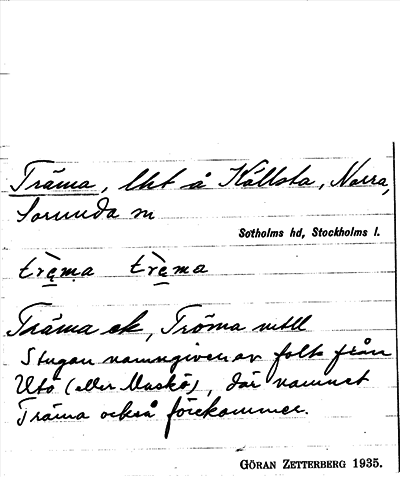 Träma, lht å Källsta, Norra,
Sorunda sn
Sotholms hd, Stockholms l.
trèma trèma
Träma ek, Tröma mtll
Stugan namngiven av folk från
Utö (eller Muskö), där namnet
Träma också förekommer.
GÖRAN ZETTERBERG 1935.